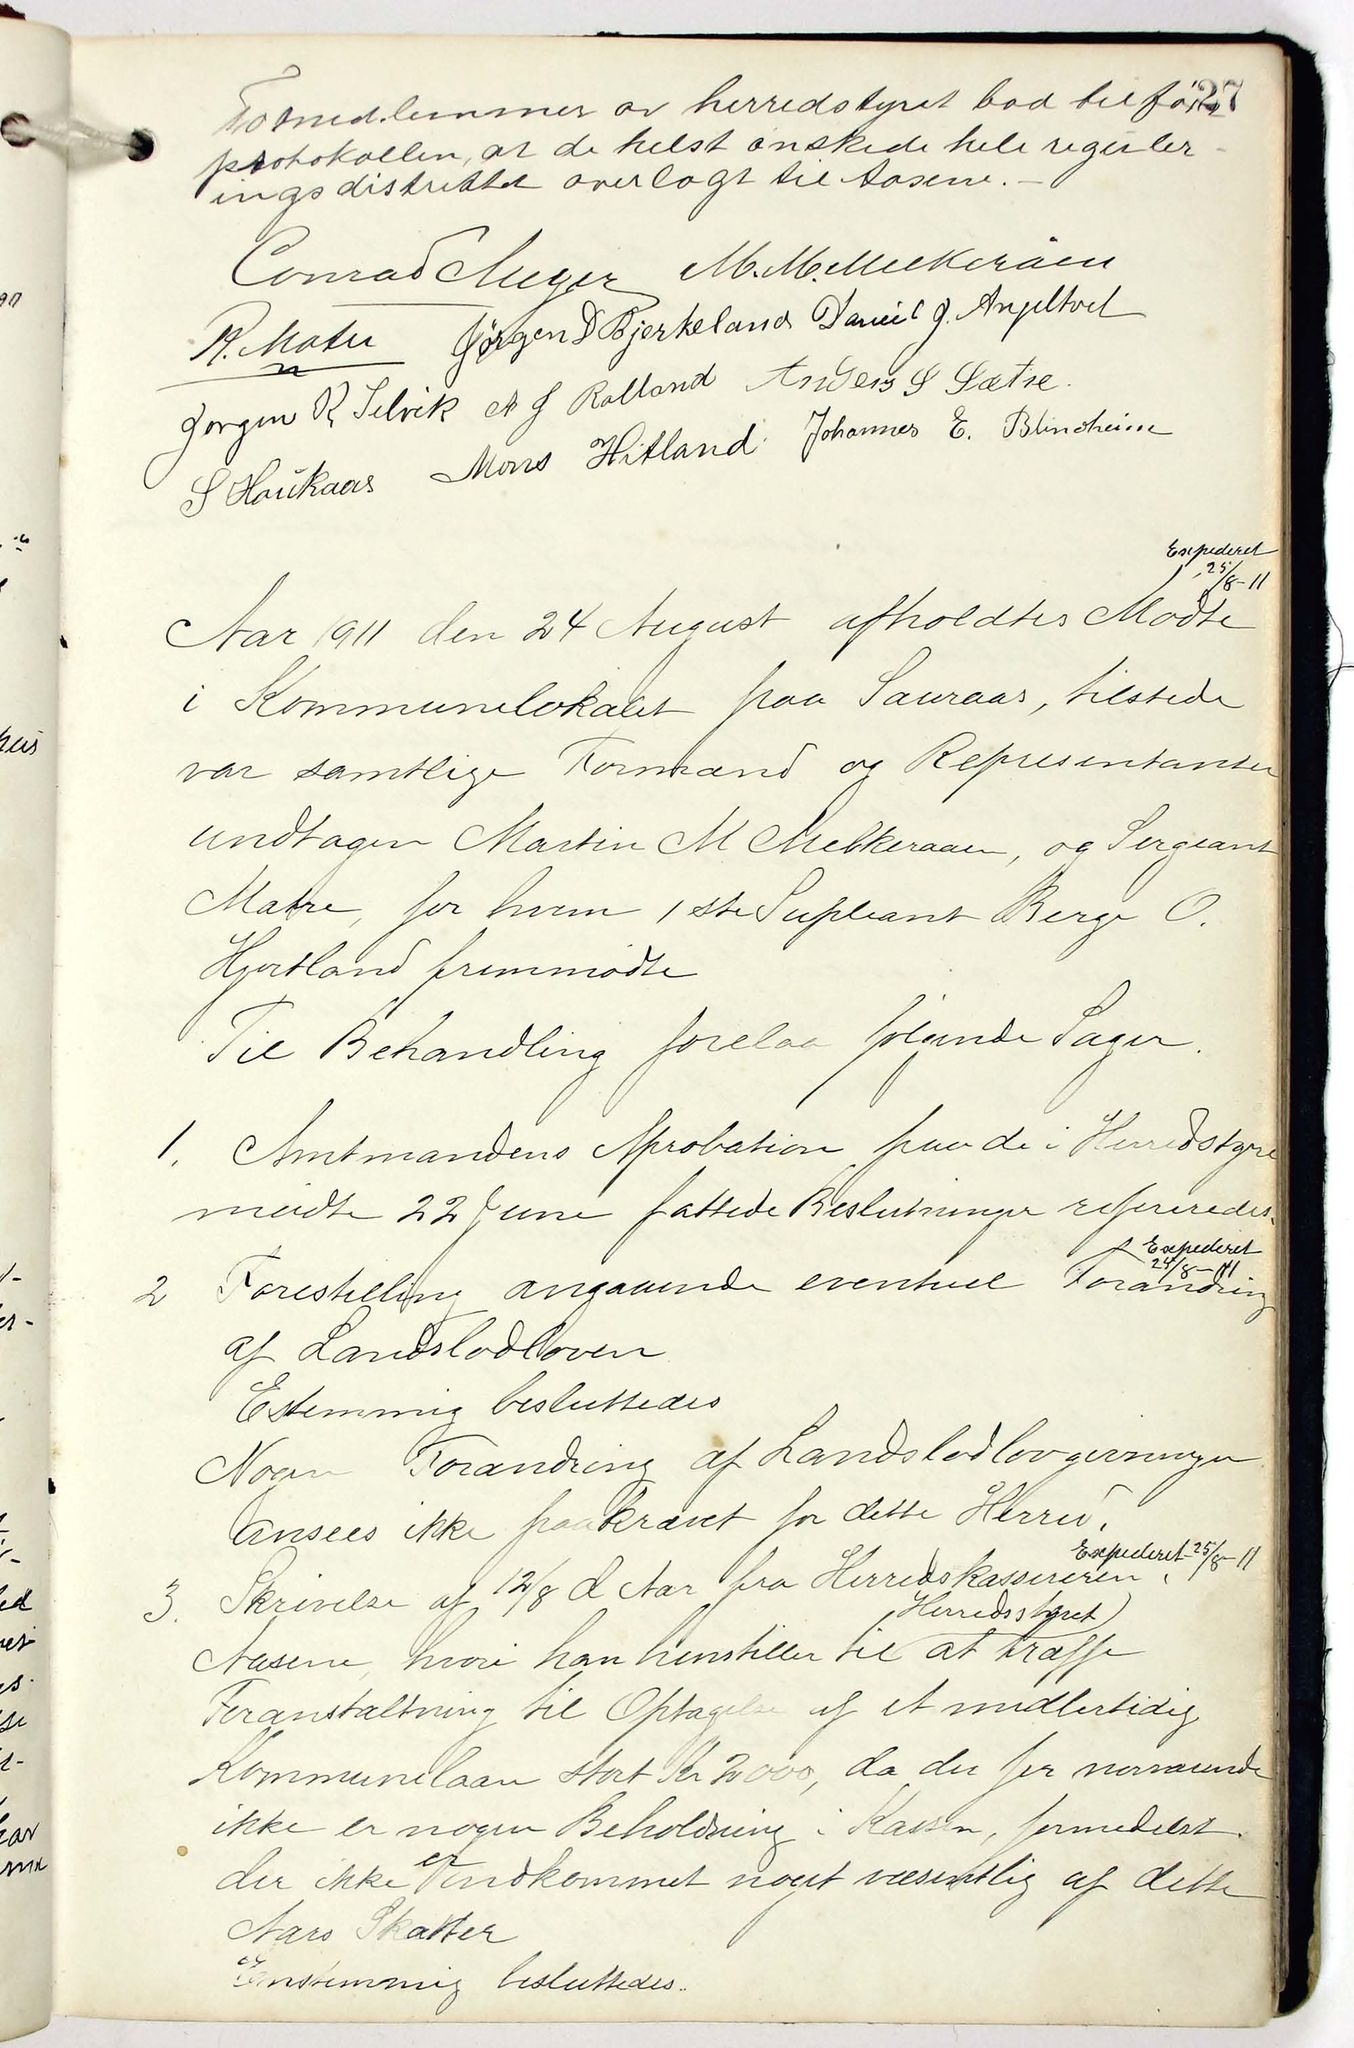 27
To medlemmer av herredstyret bad tilført
protokollen, at de helst ønskede hele reguler-
ingsdistriktet overlagt til Aasene.-
Conrad Meyer M. M. Melkeråen
R. Matre Jørgen D Bjerkeland Daniel J. Angeltvet
Jørgen R Selvik A J Rolland Anders S Sætre.
S Haukaas Mons Hitland Johannes E. Blindheim
Expederet
25/8-11
Aar 1911 den 24 August afholdtes Møde
i Kommunelokalet paa Sauraas, tilstede
var samtlige Formænd og Representanter
undtagen Martin M. Melkeraaen, og Sergeant
Matre, for hvem 1ste Supleant Berge O.
Hjortland fremmødte
Til Behandling forelaa følgende Sager.
1. Amtmandens Aprobation paa de i Herredstyre
møde 22 June fattede Beslutninger refereredes.
Expederet
24/8-11
2 Forestilling angaaende eventuel Forandring
af Landslodloven
Estemmig besluttedes
Nogen Forandring af Landslodlovgivningen
ansees ikke paakrævet for dette Herred.
Expederet 25/8-11
3. Skrivelse af 12/8 d Aar fra Herredskassereren,
Herredsstyret
Næsene, hvori han henstiller til at træffe
Foranstaltning til Optagelse af et midlertidig
Kommunelaan stort Kr 2000, da der for nærværende
ikke er nogen Beholdning i Kassen, formedelst
der ikke er indkommet noget væsentlig af dette
Aars Skatter
Enstemmig besluttedes..